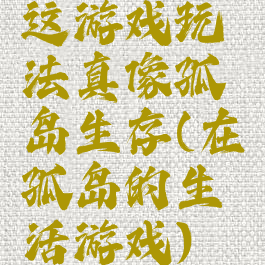 这游戏玩
法真像孤
岛生存(在
孤岛的生
活游戏)